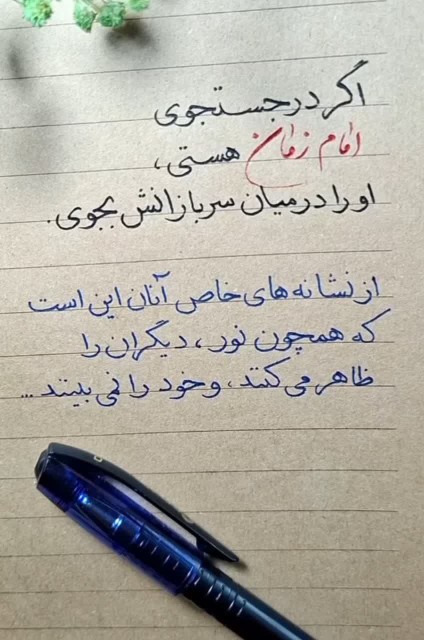 اگر در جستجوی
امام زمان هستی،
او را در میان سربازانش بجوی.
از نشانه های خاص آنان این است
که همچون نور، دیگران را
ظاهر می کنند، و خود را نمی بینند...